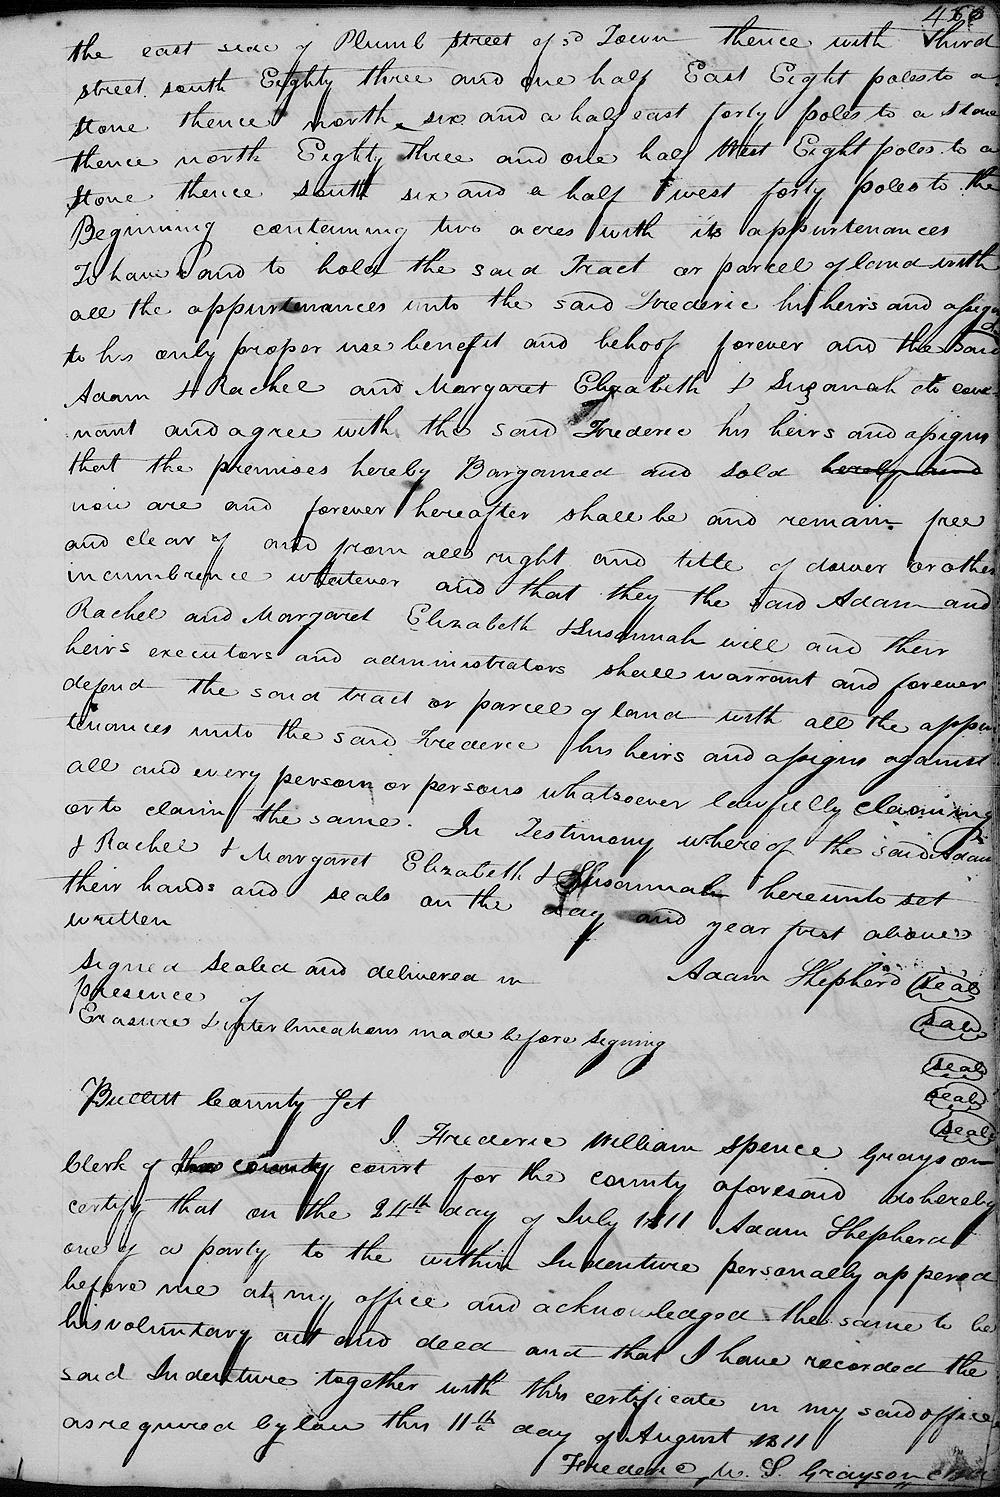 the east side of Plumb street of sd Town thence with third
street south Eighty three and one half East Eight poles to a
stone thence north six and a half east forty poles to a stone
thence north Eighty three and one half West Eight poles to a
stone thence south six and a half west forty poles to the
Beginning containing two acres with its appurtenances
To have and to hold the said Tract or parcel of land with
all the appurtenances unto the said Frederic his heirs and assigns
to his only proper use benefit and behoof forever and the said
Adam & Rachel and Margaret Elizabeth & Suzanah do cove-
nant and agree with the said Frederic his heirs and assigns
that the premises hereby Bargained and sold hereby and
now are and forever hereafter shall be and remain free
and clear of and from all right and title of dower or other
incumbrence whatever and that they the said Adam and
Rachel and Margaret Elizabeth & Susannah will and their
heirs executors and administrators shall warrant and forever
defend the said tract or parcel of land with all the appur
tenances unto the said Frederic his heirs and assigns against
all and every person or persons whatsoever lawfully claiming
or to claim the same. In Testimony whereof the said Adam
& Rachel & Margaret Elizabeth & Susannah hereunto set
their hands and seals on the day and year first above
written
signed sealed and delivered in Adam Shepherd seal
presence of
Erasure & interlineations made before signing
seal
seal
seal
seal
Bullitt County Sct
I Frederic William Spence Grayson
Clerk of the county court for the county aforesaid do hereby
certify that on the 24th day of July 1811 Adam Shepherd
one of a party to the within Indenture personally appered
before me at my office and acknowledged the same to be
his voluntary act and deed and that I have recorded the
said Indenture together with this certificate in my said office
as required by law this 11th day of August 1811
Frederic W. S. Grayson